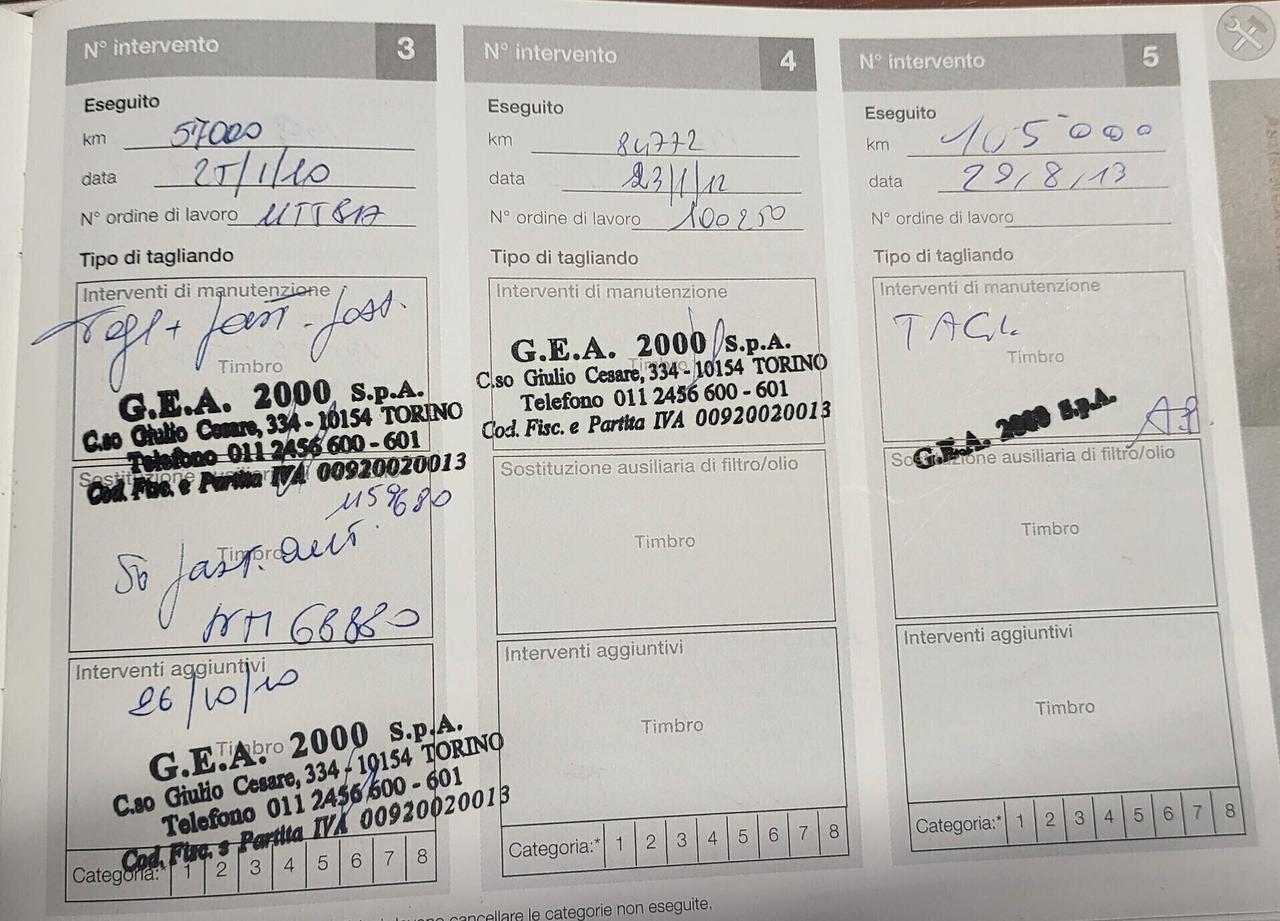 N° intervento 3
Eseguito
km 57000
data 25/1/10
N° ordine di lavoro
Tipo di tagliando
Interventi di manutenzione
Timbro
G.E.A. 2000 S.p.A.
C.so Giulio Cesare, 334 - 10154 TORINO
Telefono 011 2456 600 - 601
Cod. Fisc. e Partita IVA 00920020013
115680
Timbro
68880
Interventi aggiuntivi
26/10/10
Timbro
G.E.A. 2000 S.p.A.
C.so Giulio Cesare, 334 - 10154 TORINO
Telefono 011 2456 600 - 601
Cod. Fisc. e Partita IVA 00920020013
Categoria:* 1 2 3 4 5 6 7 8
N° intervento 4
Eseguito
km 84772
data 23/1/12
N° ordine di lavoro 100250
Tipo di tagliando
Interventi di manutenzione
Timbro
G.E.A. 2000 S.p.A.
C.so Giulio Cesare, 334 - 10154 TORINO
Telefono 011 2456 600 - 601
Cod. Fisc. e Partita IVA 00920020013
Sostituzione ausiliaria di filtro/olio
Timbro
Interventi aggiuntivi
Timbro
Categoria:* 1 2 3 4 5 6 7 8
N° intervento 5
Eseguito
km 105000
data 29/8/13
N° ordine di lavoro
Tipo di tagliando
Interventi di manutenzione
TAGL.
Timbro
G.E.A. 2000 S.p.A.
Sostituzione ausiliaria di filtro/olio
Timbro
Interventi aggiuntivi
Timbro
Categoria:* 1 2 3 4 5 6 7 8
cancellare le categorie non eseguite.